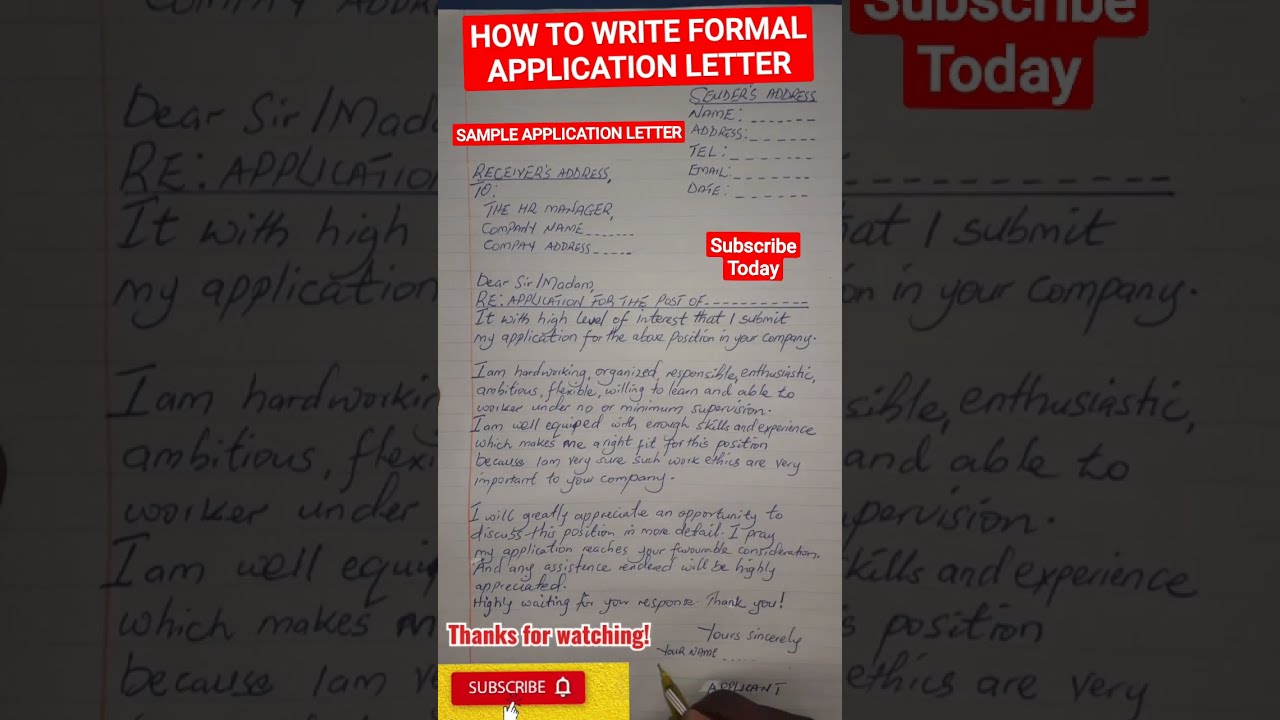 HOW TO WRITE FORMAL
APPLICATION LETTER
SENDER'S ADDRESS
NAME: _ _ _ _ _ _
SAMPLE APPLICATION LETTER
ADDRESS: _ _ _ _ _
TEL: _ _ _ _ _ _
EMAIL: _ _ _ _ _ _
DATE: _ _ _ _ _ _
RECEIVER'S ADDRESS,
TO:
THE HR MANAGER,
COMPANY NAME _ _ _ _ _ _
COMPAY ADDRESS _ _ _ _ _
Subscribe
Today
Dear Sir/Madam,
RE: APPLICATION FOR THE POST OF _ _ _ _ _ _ _ _ _ _
It with high level of interest that I submit
my application for the above position in your company.
I am hardworking, organized, responsible, enthusiastic,
ambitious, flexible, willing to learn and able to
worker under no or minimum supervision.
I am well equiped with enough skills and experience
which makes me a right fit for this position
because I am very sure such work ethics are very
important to your company.
I will greatly appreciate an opportunity to
discuss this position in more detail. I pray
my application reaches your favourable consideration.
And any assistence rendered will be highly
appreciated.
Highly waiting for your response. Thank you!
Thanks for watching!
Yours sincerely
YOUR NAME _ _ _ _
SUBSCRIBE
APPLICANT
Dear Sir/Mada
RE: APPLICATION
It with high
my application
I am hardworkin
ambitious, flexi
worker under
I am well equi
which makes m
because I am ve
Subscribe
Today
that I submit
n in your company.
sible, enthusiastic,
and able to
pervision.
skills and experience
position
ethics are very